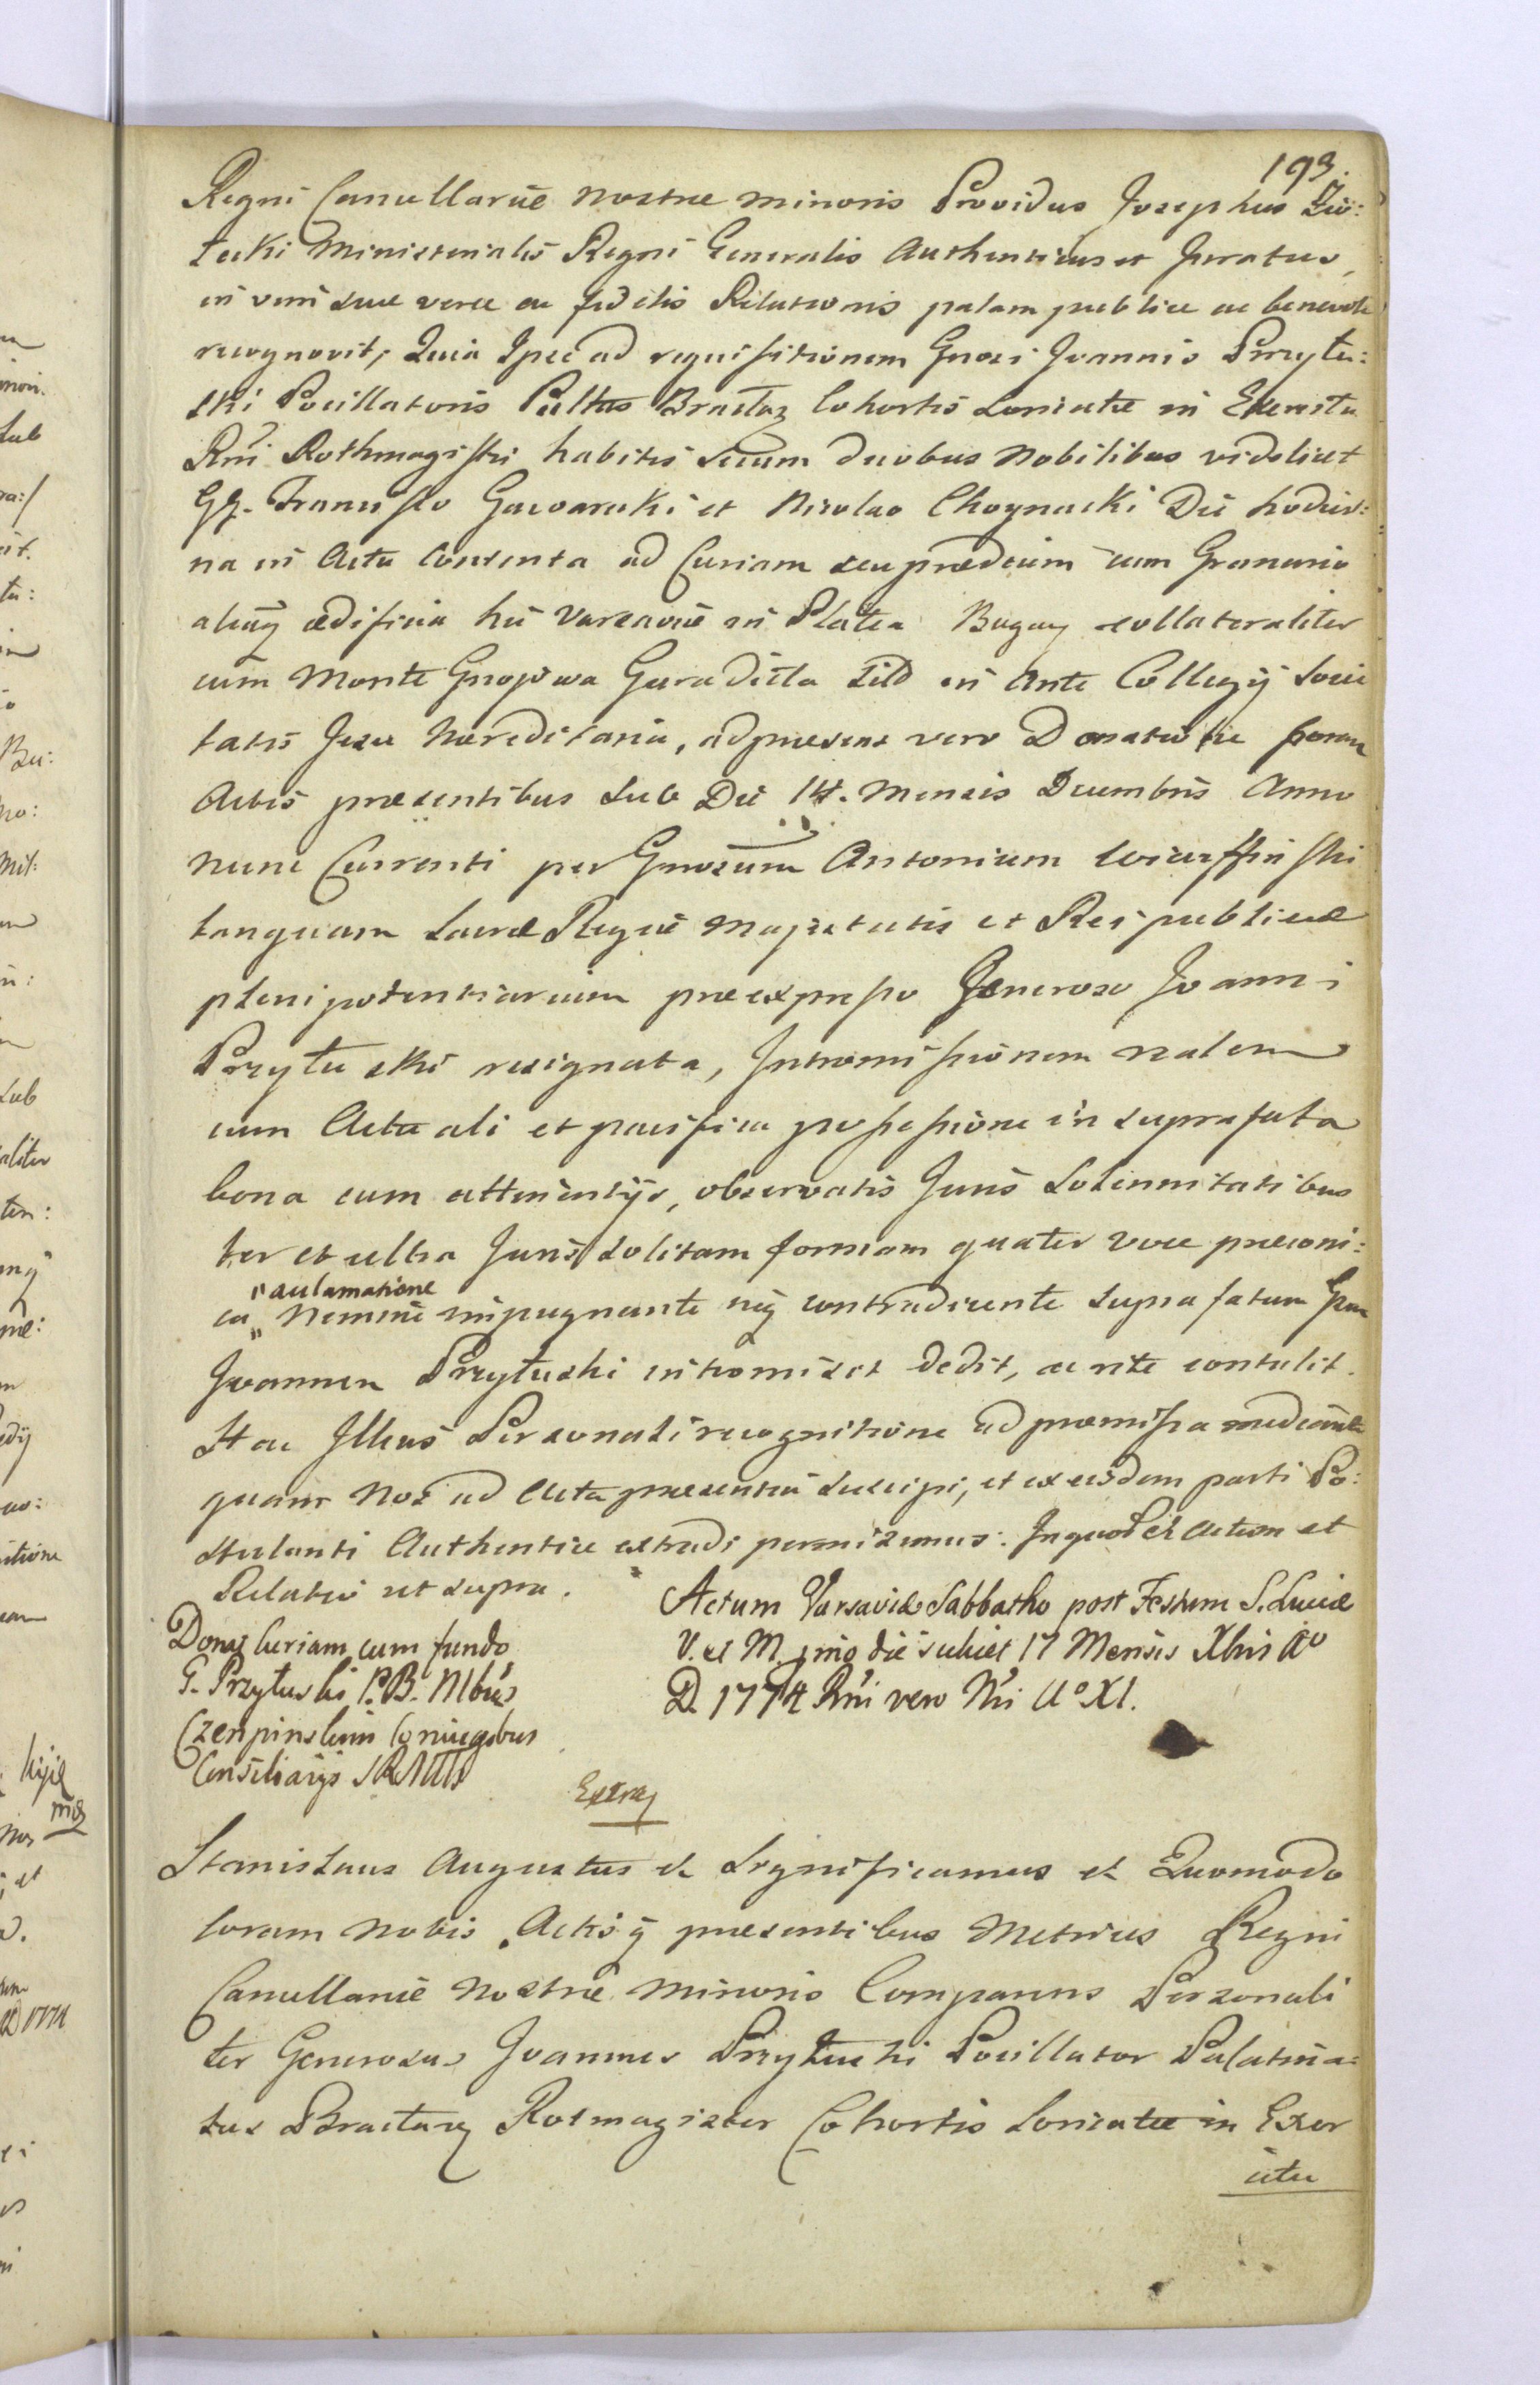 193.
Regni Cancellariæ nostræ minoris Providus Josephus Zió:
łecki Ministerialis Regni Generalis Authenticus et Juratus,
in vim suæ veræ ac fidelis Relationis palam publice ac benevole
recognovit, Quia Ipse ad requisitionem Gnosi Joannis Przyłu:
ski Pocillatoris Pal͠tus Bracłag Cohortis Loricatæ in Exercitu
Rni Rothmagistri habitis secum duobus Nobilibus videlicet
GG. Francisco Gaworecki et Nicolao Choynacki Die hodier:
na in Actu Contenta ad Curiam seu prædium cum Granario
aliaq ædificia hic Varsaviæ in Platea Bugay collateraliter
cum Monte Gnojowa Gura dicta sit͠ in Ante Collegij Socie
tatis Jesu Hæreditaria, ad præsens vero Donatitie coram
Actis præsentibus sub Die 14. Mensis Decembris Anno
nunc Currenti per Gnosum Antonium
tanquam Sacræ Regiæ Majestatis et Reipublicæ
plenipotentiarium præexpresso Generoso Joanni
Przyłuski resignata, Intromissionem realem
cum Actuali et pacifica possessione in suprafata
bona cum attinentijs, observatis Juris Solennitatibus
ter et ultra Juris solitam formam quater voce præconi:
ca "acclamatione" Nemine impugnante neq contradicente supra fatum Gnum
Joannem Przyłuski intromisit dedit, ac rite contulit.
Hac Illius Personali recognitione ad præmissa mediante
quam Nos ad Acta præsentia suscipi, et ex eisdem parti Po:
stulanti Authentice extradi permisimus. In quor͠ et Actum et
Relatio ut supra.
Actum Varsaviæ Sabbatho post Festum S. Luciæ
V. et M. pmo die scilicet 17 Mensis Xbris Ao
D. 1774 Rni vero Nri Ao XI.
Donaz Curiam cum fundo
G. Przyłuski P.B. Nlbus
Czenpinskim Coniugibus
Consiliarijs SRMttis
Exzey
Stanislaus Augustus et Significamus et Quomodo
Coram nobis Actisq præsentibus Metrices Regni
Cancellariæ Nostræ Minoris Comparens Personali
ter Generosus Joannes Przyłuski Pocillator Palatina:
tus Bracłavz Rotmagister Cohortis Loricatæ in Exer
citu